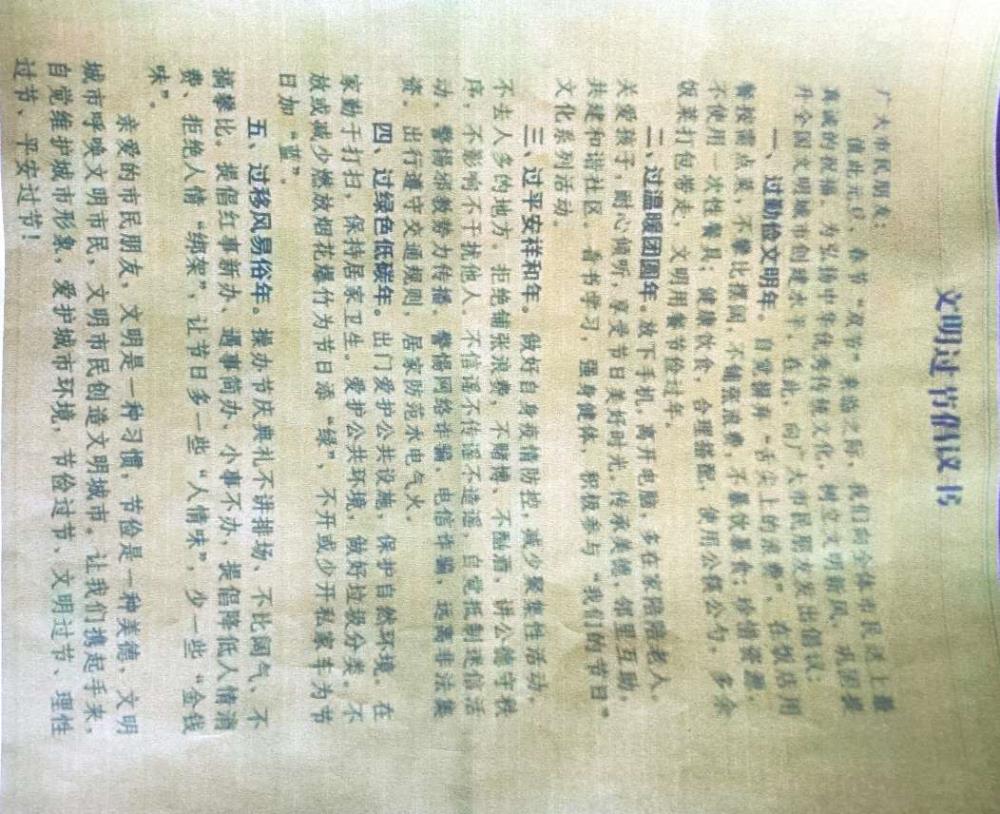 文明过节倡议书
广大市民朋友：
值此元旦、春节“双节”来临之际，我们向全体市民送上最
真诚的祝福。为弘扬中华优秀传统文化，树立文明新风，巩固提
升全国文明城市创建水平，在此，向广大市民朋友发出倡议：
一、过勤俭文明年。自觉摒弃“舌尖上的浪费”，在饭店用
餐按需点菜，不攀比摆阔，不铺张浪费，不暴饮暴食；珍惜资源，
不使用一次性餐具；健康饮食，合理搭配，使用公筷公勺，多余
饭菜打包带走，文明用餐节俭过年。
二、过温暖团圆年。放下手机，离开电脑，多在家陪陪老人，
关爱孩子，耐心倾听，享受节日美好时光。传承美德，邻里互助，
共建和谐社区。看书学习，强身健体，积极参与“我们的节日”
文化系列活动。
三、过平安祥和年。做好自身疫情防控，减少聚集性活动，
不去人多的地方。拒绝铺张浪费，不赌博、不酗酒，讲公德守秩
序，不影响不干扰他人。不信谣不传谣不造谣，自觉抵制迷信活
动。警惕邪教势力传播、警惕网络诈骗、电信诈骗，远离非法集
资。出行遵守交通规则，居家防范水电气火。
四、过绿色低碳年。出门爱护公共设施，保护自然环境。在
家勤于打扫，保持居家卫生。爱护公共环境，做好垃圾分类。不
放或减少燃放烟花爆竹为节日添“绿”，不开或少开私家车为节
日加“蓝”。
五、过移风易俗年。操办节庆典礼不讲排场、不比阔气、不
搞攀比。提倡红事新办、遇事简办、小事不办，提倡降低人情消
费、拒绝人情“绑架”，让节日多一些“人情味”，少一些“金钱
味”。
亲爱的市民朋友，文明是一种习惯，节俭是一种美德，文明
城市呼唤文明市民，文明市民创造文明城市。让我们携起手来，
自觉维护城市形象，爱护城市环境，节俭过节、文明过节、理性
过节、平安过节！